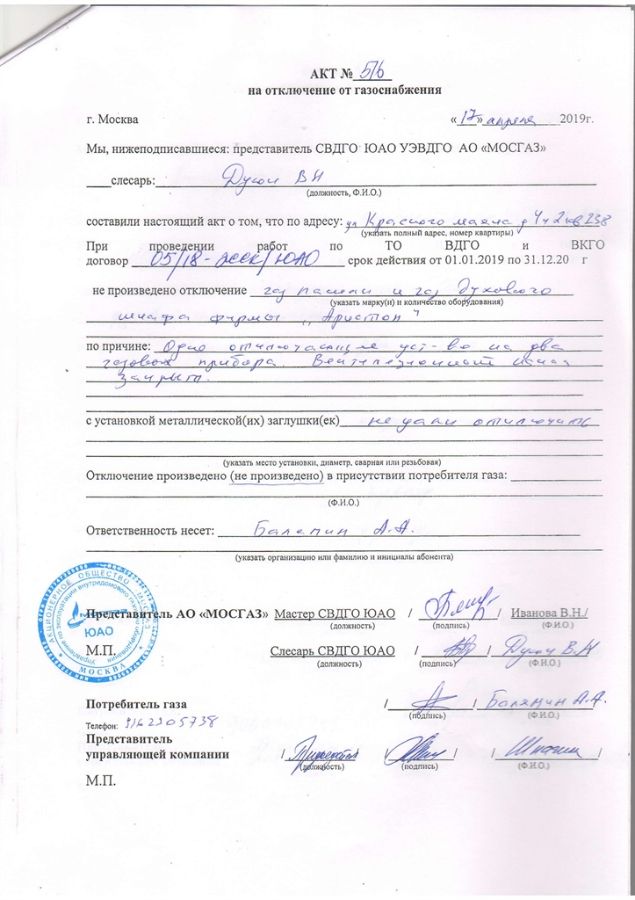 АКТ № 5/6
на отключение от газоснабжения
г. Москва «17» апреля 2019г.
Мы, нижеподписавшиеся: представитель СВДГО ЮАО УЭВДГО АО «МОСГАЗ»
слесарь: В Н
(должность, Ф.И.О.)
составили настоящий акт о том, что по адресу: ул Красного маяка д 4 ч 2 кв 238
(указать полный адрес, номер квартиры)
При проведении работ по ТО ВДГО и ВКГО
договор 05/18-ЖССК/ЮАО срок действия от 01.01.2019 по 31.12.20 г
не произведено отключение газ панели и газ духового
(указать марку(и) и количество оборудования)
шкафа фирмы „Аристон"
по причине: Одно отключающие уст-во на два
газовых прибора. Вентиляционный канал
закрыт.
с установкой металлической(их) заглушки(ек) не дали отключить
(указать место установки, диаметр, сварная или резьбовая)
Отключение произведено (не произведено) в присутствии потребителя газа:
(Ф.И.О.)
Ответственность несет: А.А.
(указать организацию или фамилию и инициалы абонента)
АКЦИОНЕРНОЕ ОБЩЕСТВО
ЮАО
МОСКВА
Представитель АО «МОСГАЗ» Мастер СВДГО ЮАО / / Иванова В.Н./
(должность) (подпись) (Ф.И.О.)
М.П. Слесарь СВДГО ЮАО / / В.Н
(должность) (подпись) (Ф.И.О.)
Потребитель газа / / А.А.
(подпись) (Ф.И.О.)
Телефон: 9162305738
Представитель
управляющей компании / / / / /
(должность) (подпись) (Ф.И.О.)
М.П.